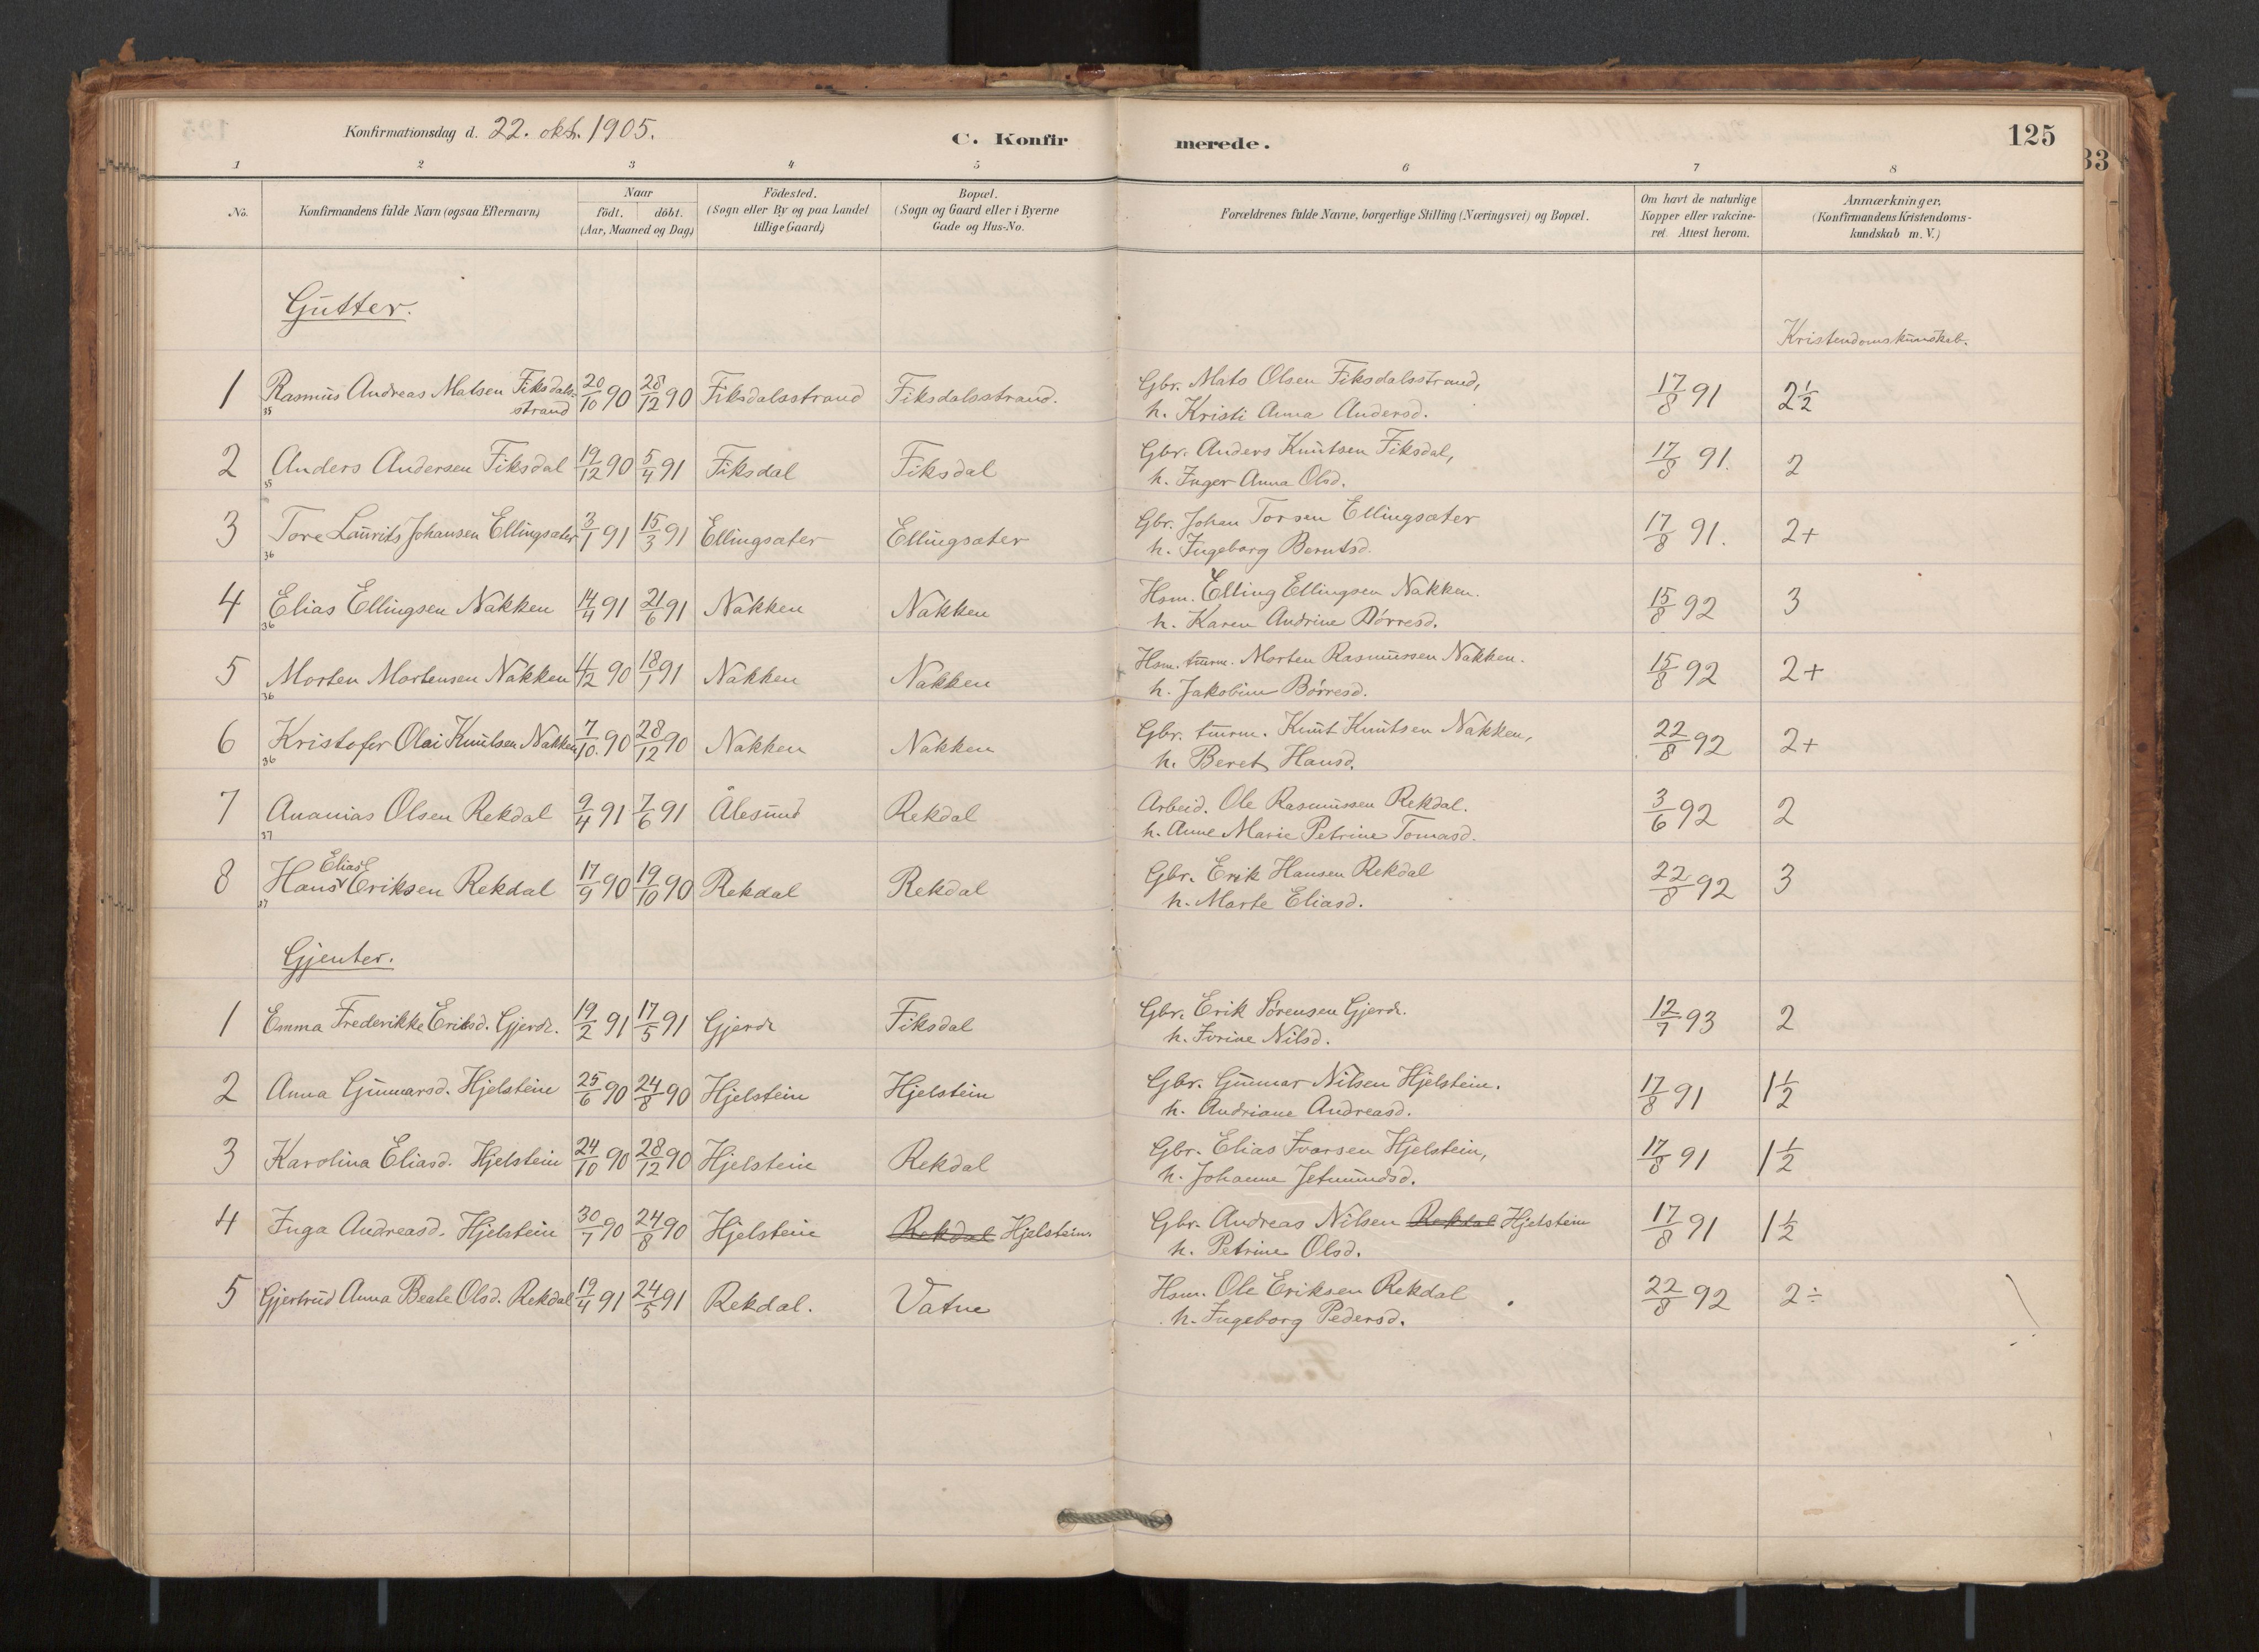 Konfirmationsdag d. 22. okt. 1905.
C. Konfir
merede.
125
33
1 2 3 4 5 6 7 8
No.
Konfirmandens fulde Navn (ogsaa Efternavn)
Naar
födt. döbt.
(Aar, Maaned og Dag)
Födested.
(Sogn eller By og paa Landet
tillige Gaard)
Bopæl.
(Sogn og Gaard eller i Byerne
Gade og Hus-No.
Forældrenes fulde Navne, borgerlige Stilling (Næringsvei) og Bopæl.
Om havt de naturlige
Kopper eller vakcine-
ret. Attest herom.
Anmærkninger.
(Konfirmandens Kristendoms-
kundskab m. V.)
Gutter.
Kristendomskunskab.
1 Rasmus Andreas Matsen Fiksdals- 20/10 90 28/12 90 Fiksdalsstrand Fiksdalsstrand. Gbr. Mats Olsen Fiksdalsstrand, 17/8 91 2½
35 strand h. Kristi Anna Andersd.
2 Anders Andersen Fiksdal 19/12 90 5/4 91 Fiksdal Fiksdal Gbr. Anders Knutsen Fiksdal, 17/8 91. 2
35 h. Inger Anna Olsd.
3 Tore Laurits Johansen Ellingsæter 3/1 91 15/3 91 Ellingsæter Ellingsæter Gbr. Johan Torsen Ellingsæter 17/8 91. 2+
36 h. Ingeborg Berntsd.
4 Elias Ellingsen Nakken 14/4 91 21/6 91 Nakken Nakken Hsm. Elling Ellingsen Nakken. 15/8 92 3
36 h. Karen Andrine Børresd.
5 Morten Mortensen Nakken 4/12 90 18/1 91 Nakken Nakken Hsm. tmrm. Morten Rasmussen Nakken. 15/8 92 2+
36 h. Jakobine Børresd.
6 Kristofer Olai Knutsen Nakken 7/10. 90 28/12 90 Nakken Nakken Gbr. tmrm. Knut Knutsen Nakken, 22/8 92 2+
36 h. Beret Hansd.
7 Ananias Olsen Rekdal 9/4 91 7/6 91 Ålesund Rekdal Arbeid. Ole Rasmussen Rekdal. 3/6 92 2
37 h. Anne Marie Petrine Tomasd.
Elias
8 Hans Eriksen Rekdal 17/9 90 19/10 90 Rekdal Rekdal Gbr. Erik Hansen Rekdal 22/8 92 3
37 h. Marte Eliasd.
Gjenter.
1 Emma Frederikke Eriksd. Gjerde. 19/2 91 17/5 91 Gjerde Fiksdal Gbr. Erik Sørensen Gjerde. 12/7 93 2
h. Ivrine Nilsd.
2 Anna Gunnarsd. Hjelstein 25/6 90 24/8 90 Hjelstein Hjelstein Gbr. Gunnar Nilsen Hjelstein. 17/8 91 1½
h. Andriane Andreasd.
3 Karolina Eliasd. Hjelstein 24/10 90 28/12 90 Hjelstein Rekdal Gbr. Elias Ivarsen Hjelstein, 17/8 91 1½
h. Johanne Jetmundsd.
4 Inga Andreasd. Hjelstein 30/7 90 24/8 90 Hjelstein Rekdal Hjelstein. Gbr. Andreas Nilsen Rekdal Hjelstein 17/8 91 1½
h. Petrine Olsd.
5 Gjertrud Anna Beate Olsd. Rekdal 19/4 91 24/5 91 Rekdal. Vatne Hsm. Ole Eriksen Rekdal 22/8 92 2÷
h. Ingeborg Pedersd.